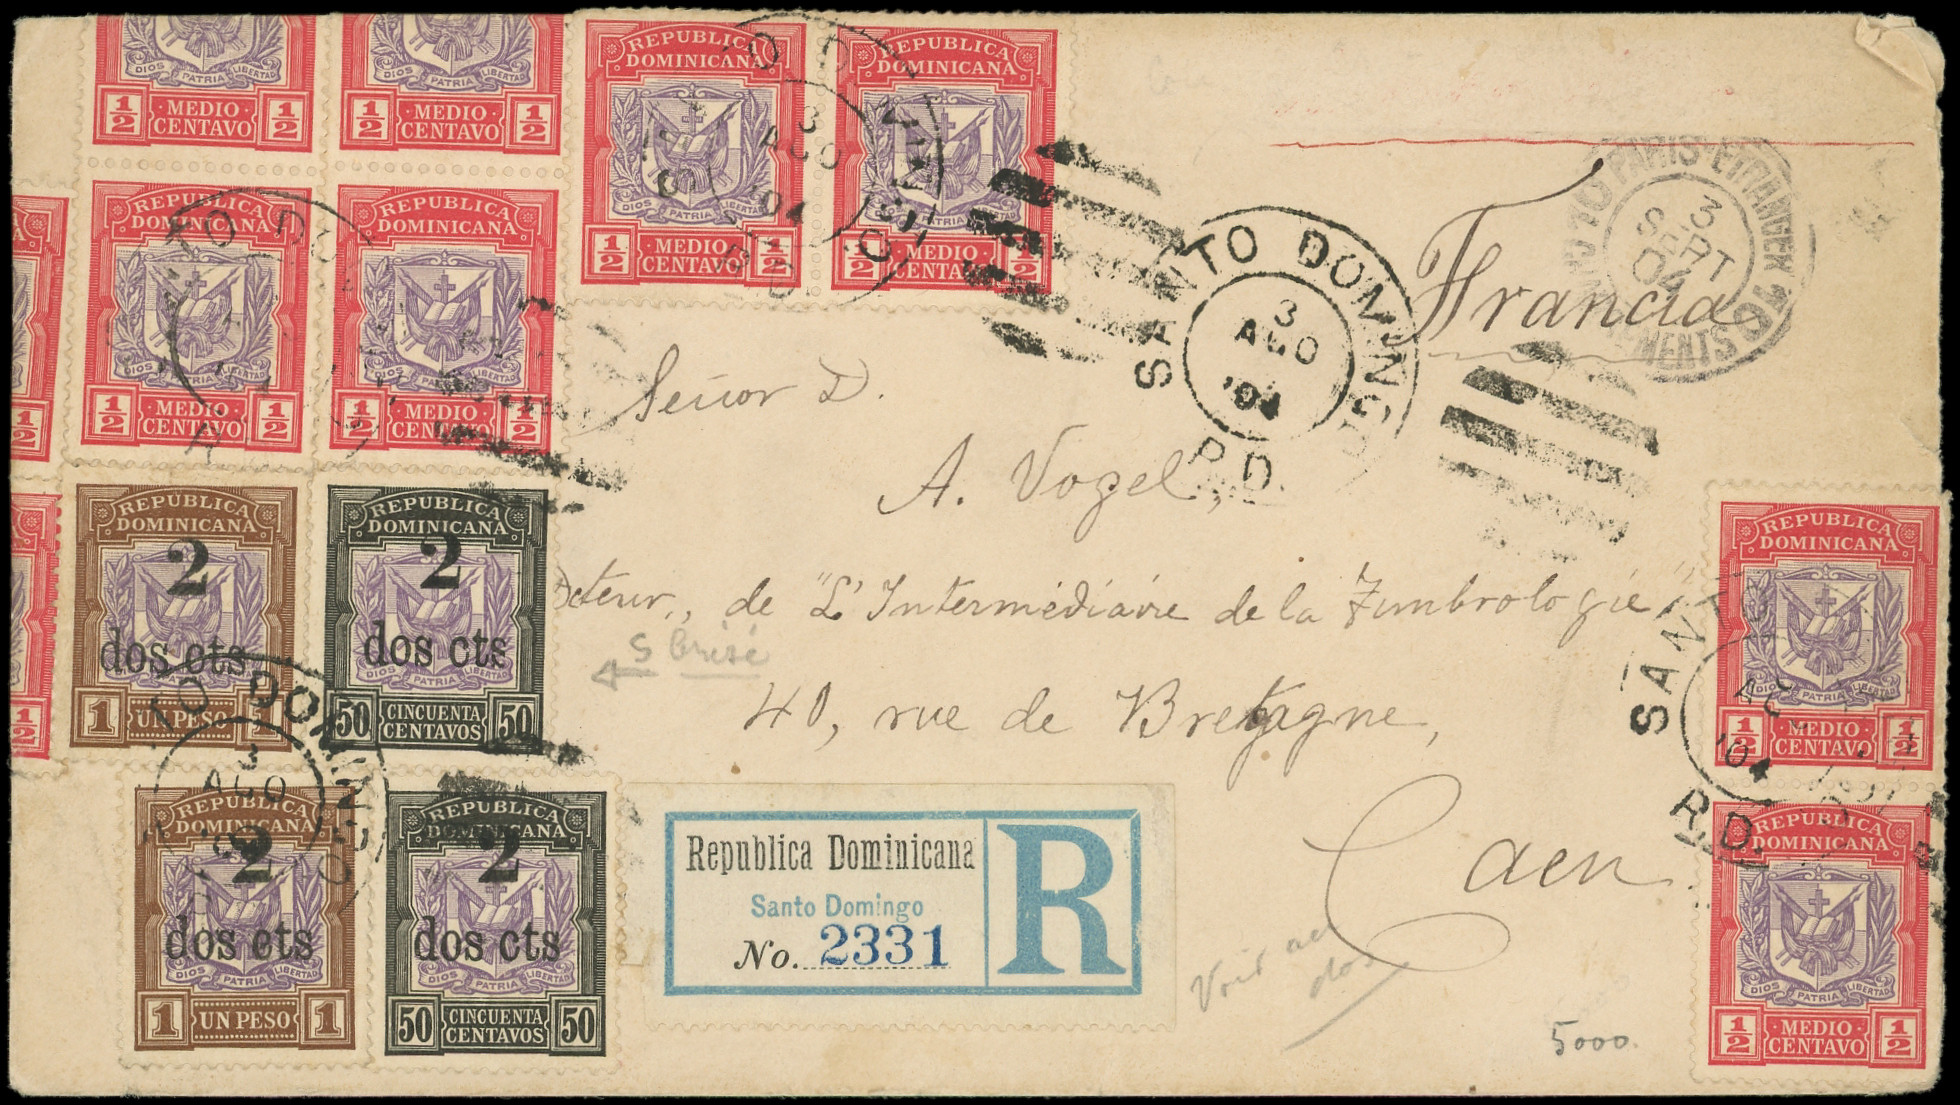 DIOS PATRIA LIBERTAD
1/2 · MEDIO · CENTAVO 1/2
DIOS PATRIA LIBERTAD
1/2 · MEDIO · CENTAVO 1/2
REPUBLICA
DOMINICANA
DIOS PATRIA LIBERTAD
1/2 · MEDIO · CENTAVO 1/2
REPUBLICA
DOMINICANA
DIOS PATRIA LIBERTAD
1/2 · MEDIO · CENTAVO 1/2
3
AGO
'04
REPUBLICA
DOMINICANA
DIOS PATRIA LIBERTAD
1/2 · MEDIO · CENTAVO 1/2
REPUBLICA
DOMINICANA
DIOS PATRIA LIBERTAD
1/2 · MEDIO · CENTAVO 1/2
1/2
1/2
SANTO DOMINGO
3
AGO
'04
R.D.
PARIS-ETRANGER
3
SEPT
04
Francia
Señor D.
A. Vogel,
de "L'Intermédiaire de la Timbrologie"
S Brisé
40, rue de Bretagne,
Caen
REPUBLICA
DOMINICANA
2
dos cts
1 UN PESO 1
REPUBLICA
DOMINICANA
2
dos cts
DIOS PATRIA LIBERTAD
50 CINCUENTA CENTAVOS 50
TO DOMINGO
3
AGO
REPUBLICA
DOMINICANA
2
dos cts
DIOS PATRIA LIBERTAD
1 UN PESO 1
REPUBLICA
DOMINICANA
2
dos cts
DIOS PATRIA LIBERTAD
50 CINCUENTA CENTAVOS 50
Republica Dominicana
Santo Domingo
No. 2331
R
Voir au
dos
5000.
REPUBLICA
DOMINICANA
DIOS PATRIA LIBERTAD
1/2 · MEDIO · CENTAVO 1/2
SANTO
'04
R.D.
REPUBLICA
DOMINICANA
DIOS PATRIA LIBERTAD
1/2 · MEDIO · CENTAVO 1/2